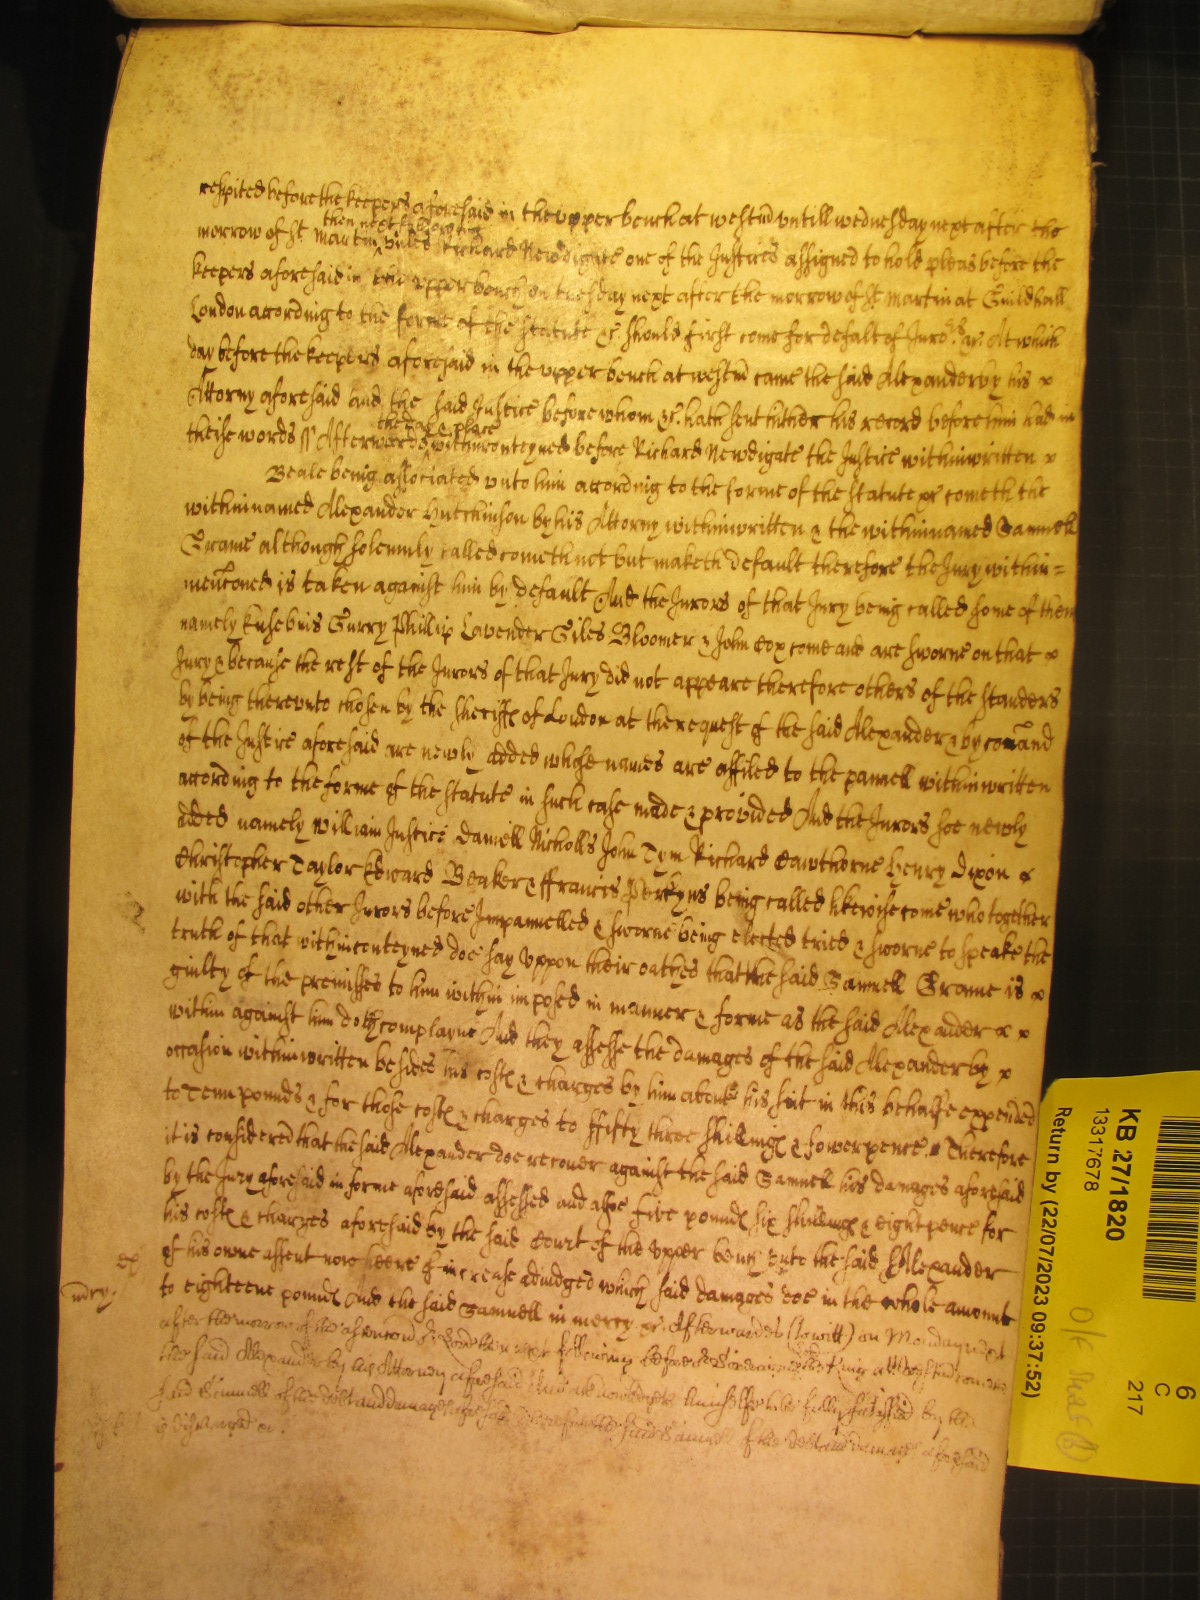 respited before the keepers aforesaid in the upper bench at westm̄ vntill wednesday next after the
morrow of St. Martin then next following vnles Richard Newdigate one of the Justices assigned to hold pleas before the
keepers aforesaid in the vpper bench on tuesday next after the morrow of St. Martin at Guildhall
London according to the forme of the statute &c. should first come for defalt of Juro.rs &c. At which
day before the keepers aforesaid in the vpper bench at westm̄ came the said Alexander by his x
Attorny aforesaid And the said Justice before whom &c. hath sent hither his record before him had in
theise words ss Afterwards the day & place withinconteyned before Richard Newdigate the Justice withinwritten x
Beale being associated vnto him according to the forme of the statute &c cometh the
withinnamed Alexander Hutchinson by his Attorny withinwritten & the withinnamed Samuell
Grame although solemnly called cometh not but maketh default therefore the Jury within=
menc̄oned is taken against him by default And the Jurors of that Jury being called some of them
namely Eusebius Gurry Phillip Lavender Giles Bloomer & John Cox come and are sworne on that x
Jury & because the rest of the Jurors of that Jury did not appeare therefore others of the standers
by being therevnto chosen by the Sheriffs of London at the request of the said Alexander & by com̄and
of the Justice aforesaid are newly added whose names are affiled to the pannell withinwritten
according to the forme of the statute in such case made & provided And the Jurors soe newly
added namely William Justice Daniell Nicholls John Tym Richard Cawthorne Henry Dixon &
Christopher Taylor Edward Beaker & ffrancis Perkyns being called likewise come who together
with the said other Jurors before Impannelled & sworne being elected tried & sworne to speake the
truth of that withinconteyned doe say vppon their oathes that the said Samuell Grame is x
guilty of the premisses to him within imposed in manner & forme as the said Alexander x x
within against him doth complayne And they assesse the damages of the said Alexander by x
occasion withinwritten besides his costs & charges by him about his suit in this behalfe expended
to Tenn pounds & for those costs & charges to ffifty three shillings & fowerpence. Therefore
it is considered that the said Alexander doe recover against the said Samuell his damages aforesaid
by the Jury aforesaid in forme aforesaid assessed and alsoe five pounds six shillings & eightpence for
his costs & charges aforesaid by the said Court of the vpper bench vnto the said Alexander
of his owne assent now heere of increase adiudged which said damages doe in the whole amount
to eighteene pounds And the said Samuell in mercy &c. Afterwardes (to witt) on Monday next
mercy.
after the morrow of the ascencon of our Lord then next following before the
the said Alexander by his Attorney aforesaid And acknowledgeth himselfe to be fully satisfyed by the
said Samuell of the debt and damages aforesaid Therefore the said Samuell of the debt and damages aforesaid
is discharged &c.
KB 27/1820
13317678
Return by (22/07/2023 09:37:52)
6
C
217